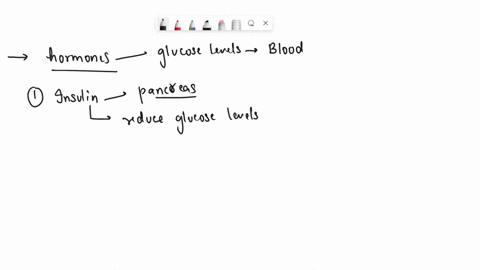 → hormones — glucose levels → Blood
① Insulin → pancreas
↳ reduce glucose levels